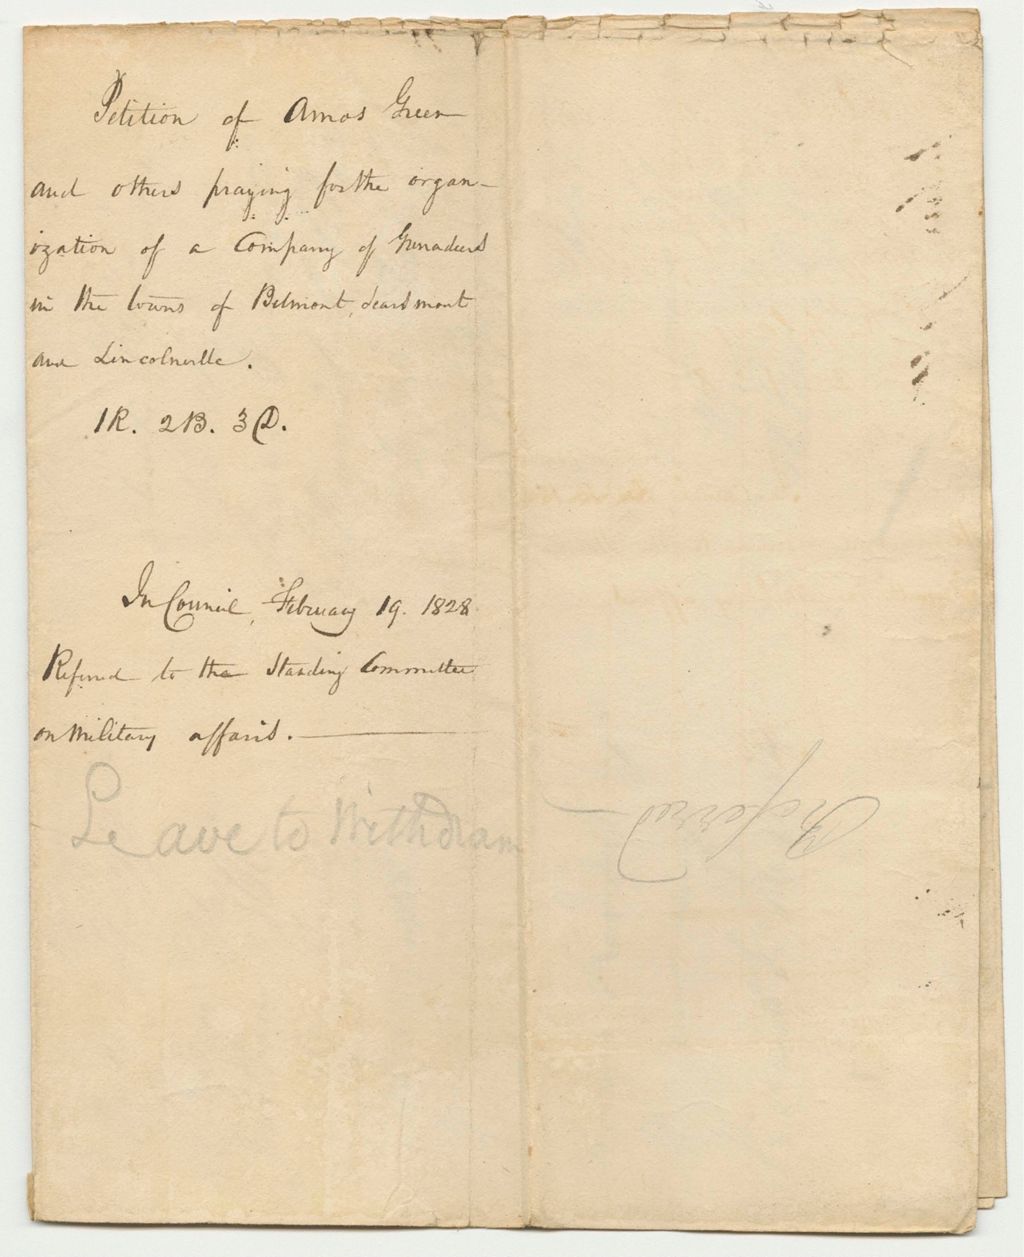 Petition of Amos Green
and others praying for the organ-
ization of a Company of Grenadiers
in the towns of Belmont, Searsmont
and Lincolnville.
1R. 2B. 3D.
In Council, February 19. 1828.
Referred to the Standing Committee
on Military affairs.
Leave to Withdraw
Referred